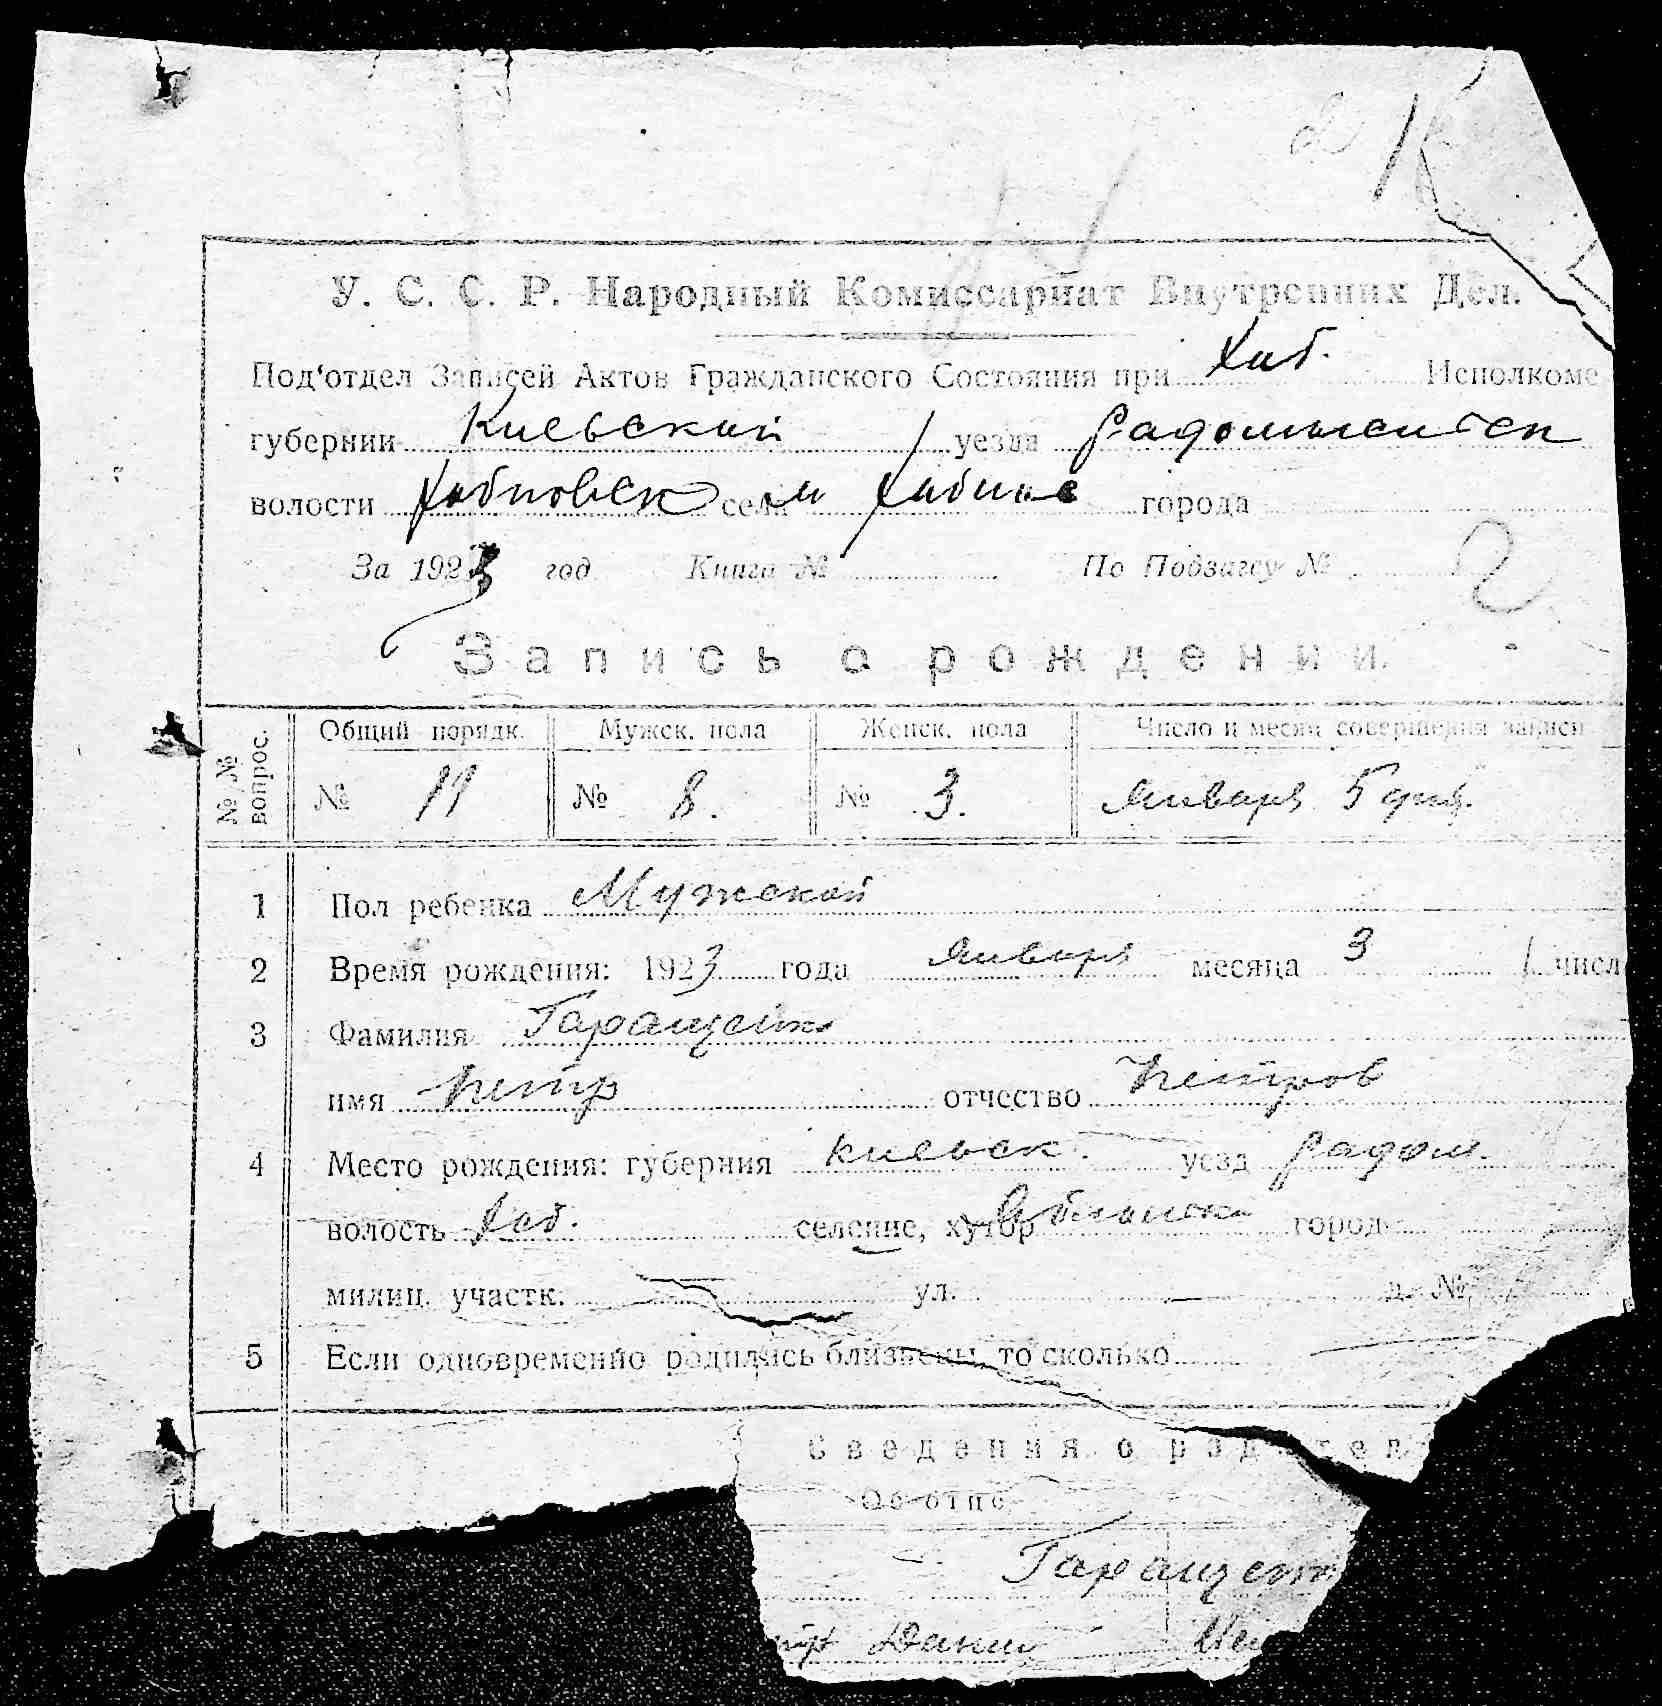 2 1
У. С. С. Р. Народный Комиссариат Внутренних Дел.
Под'отдел Записей Актов Гражданского Состояния при Хаб. Исполкоме
губернии Киевской уезда Радомысльск
волости Хабновск села м Хабное города
За 1923 год Книга № По Подзагсу № 2
Запись о рождении.
№ № вопрос. Общий порядк. Мужск. пола Женск. пола Число и месяц совершения записи
№ 11 № 8. № 3. Января 5 дня.
1 Пол ребенка Мужской
2 Время рождения: 1923 года Января месяца 3 числ
3 Фамилия Таращенко
имя Петр отчество Петров
4 Место рождения: губерния Киевск. уезд Радом.
волость Хаб. селение, хутор город
милиц. участк. ул. д. №
5 Если одновременно родились близнецы, то сколько
Сведения о родител
Об отце
Таращен
тр Данил